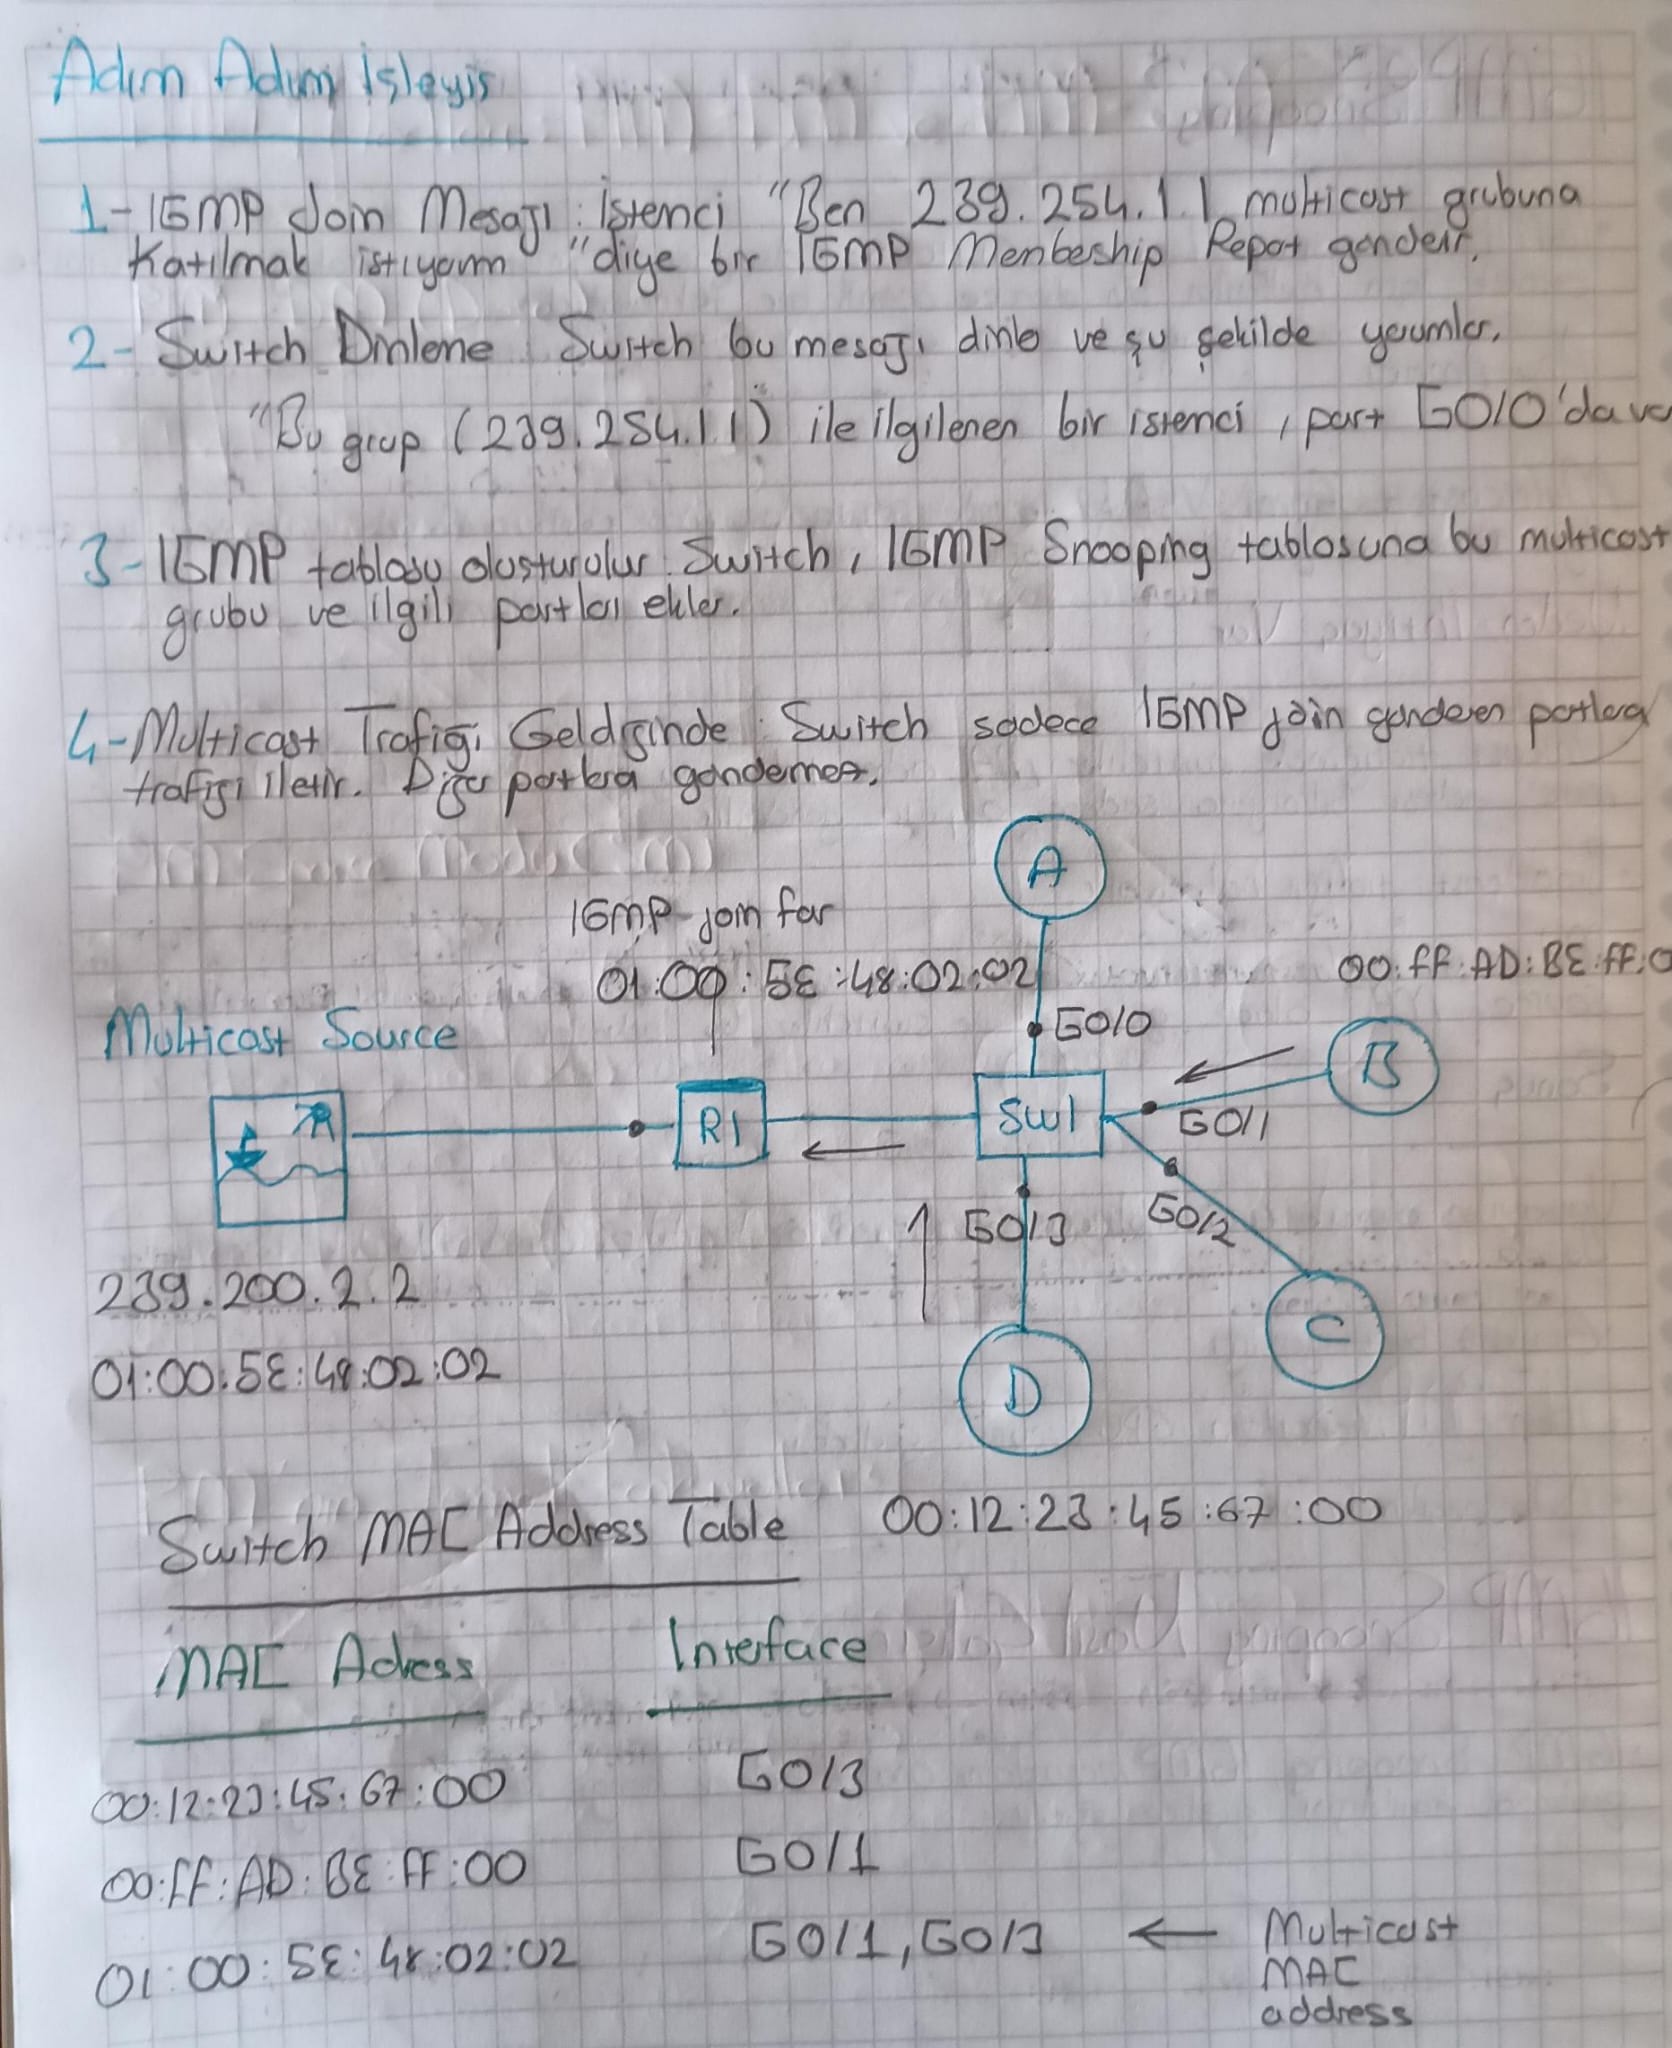 Adım Adım İşleyiş
1-IGMP Join Mesajı: İstemci "Ben 239.254.1.1 multicast grubuna
Katılmak istiyorum" diye bir IGMP Membeship Repot gönderir.
2- Switch Dinleme Switch bu mesajı dinler ve şu şekilde yorumlar.
"Bu grup (239.254.1.1) ile ilgilenen bir istemci, port G0/0'da var
3-IGMP tablosu oluşturulur: Switch, IGMP Snooping tablosuna bu multicast
grubu ve ilgili portları ekler.
4-Multicast Trafiği Geldiğinde: Switch sadece IGMP join gönderen portlara
trafiği iletir. Diğer portlara göndermez.
A
IGMP join for
01:00:5E:48:02:02
00:FF:AD:BE:FF:0
Multicast Source
G0/0
B
R1
SW1
G0/1
G0/3
G0/2
239.200.2.2
C
01:00:5E:48:02:02
D
Switch MAC Address Table
00:12:23:45:67:00
MAC Adress Interface
00:12:23:45:67:00 G0/3
00:FF:AD:BE:FF:00 G0/1
01:00:5E:48:02:02 G0/1,G0/3 ← Multicast
MAC
address